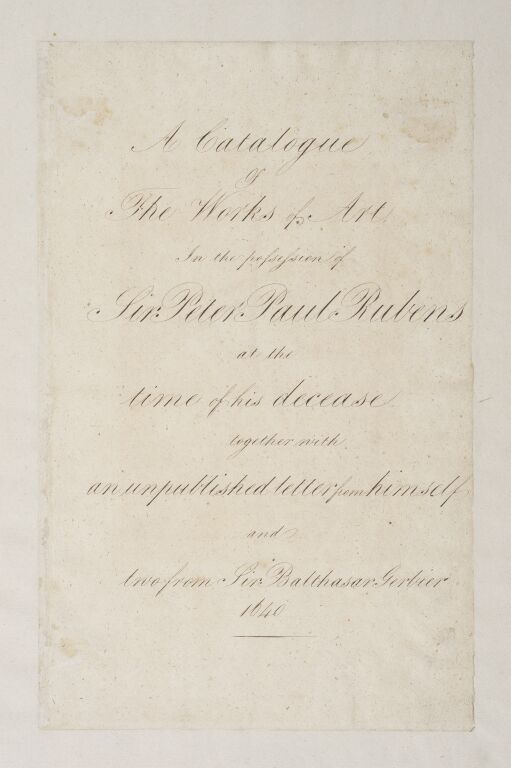 A Catalogue
Of
The Works of Art
In the poſseſsion of
Sir Peter Paul Rubens
at the
time of his decease
together with
an unpublished letter from himself
and
two from Sir Balthasar Gerbier
1640